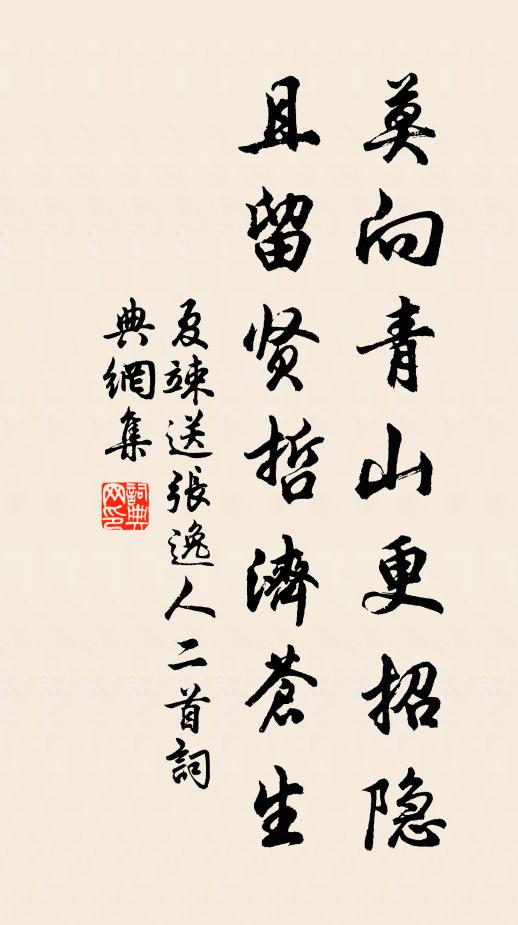 莫向青山更招隐
且留贤哲濟蒼生
夏竦送張逸人二首詞
典網集
詞典
网印